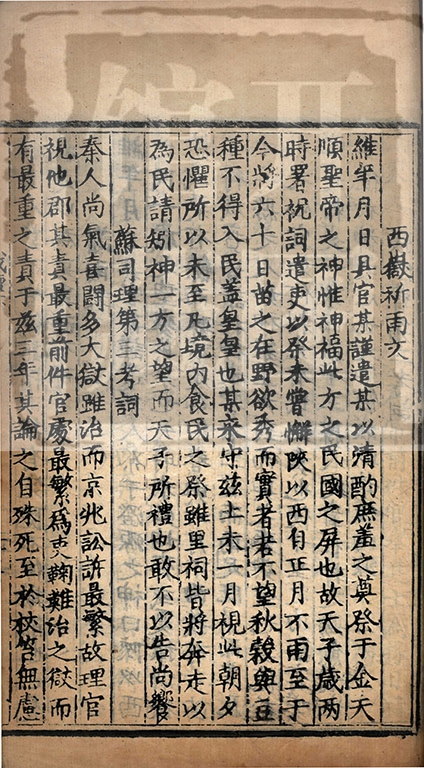 西嶽祈雨文
維年月日具官某謹遣某以清酌庶羞之奠祭于金天
順聖帝之神惟神福此方之民國之屏也故天子歲兩
時署祝詞遣吏以祭未嘗懈陜以西自正月不雨至于
今將六十日苗之在野欲秀而實者若不望秋穀與豆
種不得入民蓋皇皇也某來守兹土未一月視此朝夕
恐懼所以未至凡境内食民之祭雖里祠皆將奔走以
為民請矧神一方之望而天子所禮也敢不以告尚饗
蘇司理第三考詞
秦人尚氣喜鬪多大獄雖治而京兆訟訴最繁故理官
視他郡其責最重前件官處最繁為吏鞠難治之獄而
有最重之責于兹三年其論之自殊死至於杖笞無慮